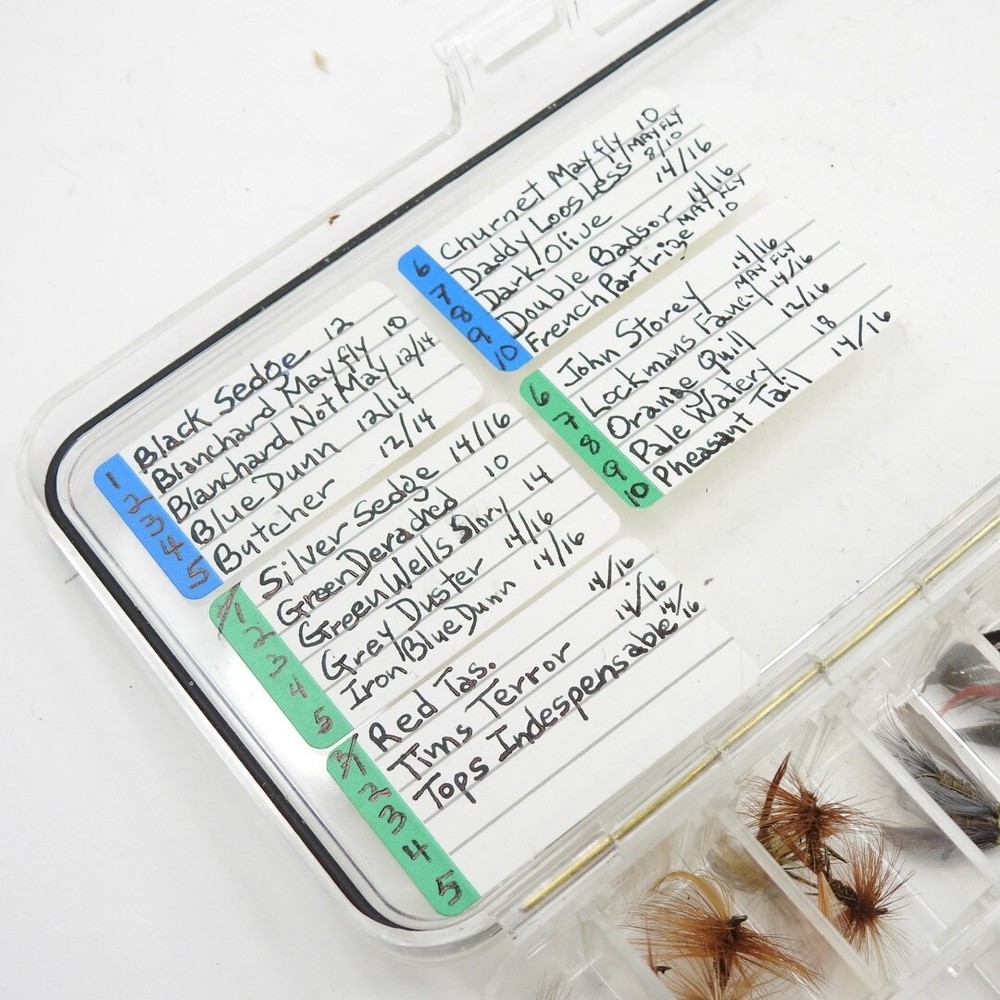 1 Black Sedge 12
2 Blanchard May fly 10
3 Blanchard Not May 12/14
4 Blue Dunn 12/14
5 Butcher 12/14
6 Churnet May fly 10
7 Daddy Loos Less MAY FLY 8/10
8 Dark Olive 14/16
9 Double Badsor 14/16
10 French Partrige MAY FLY 10
1 Silver Sedge 14/16
2 Green Derached 10
3 Green Wells Slory 14
4 Grey Duster 14/16
5 Iron Blue Dunn 14/16
6 John Storey 14/16
7 Lockmans Fancy MAY FLY 14/16
8 Orange Quill 12/16
9 Pale Watery 18
10 Pheasant Tail 14/16
1 Red Tas. 14/16
2 Tims Terror 14/16
3 Tops Indespensable 14/16
4
5